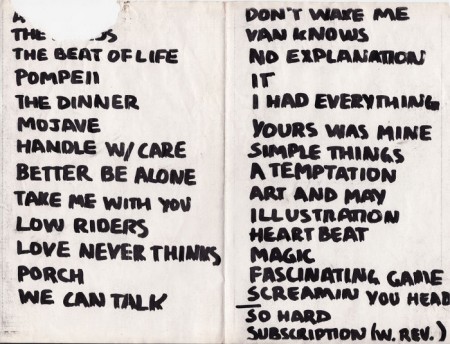 THE
THE BEAT OF LIFE
POMPEII
THE DINNER
MOJAVE
HANDLE W/ CARE
BETTER BE ALONE
TAKE ME WITH YOU
LOW RIDERS
LOVE NEVER THINKS
PORCH
WE CAN TALK
DON'T WAKE ME
VAN KNOWS
NO EXPLANATION
IT
I HAD EVERYTHING
YOURS WAS MINE
SIMPLE THINGS
A TEMPTATION
ART AND MAY
ILLUSTRATION
HEART BEAT
MAGIC
FASCINATING GAME
SCREAMIN YOU HEAD
SO HARD
SUBSCRIPTION (W. REV.)